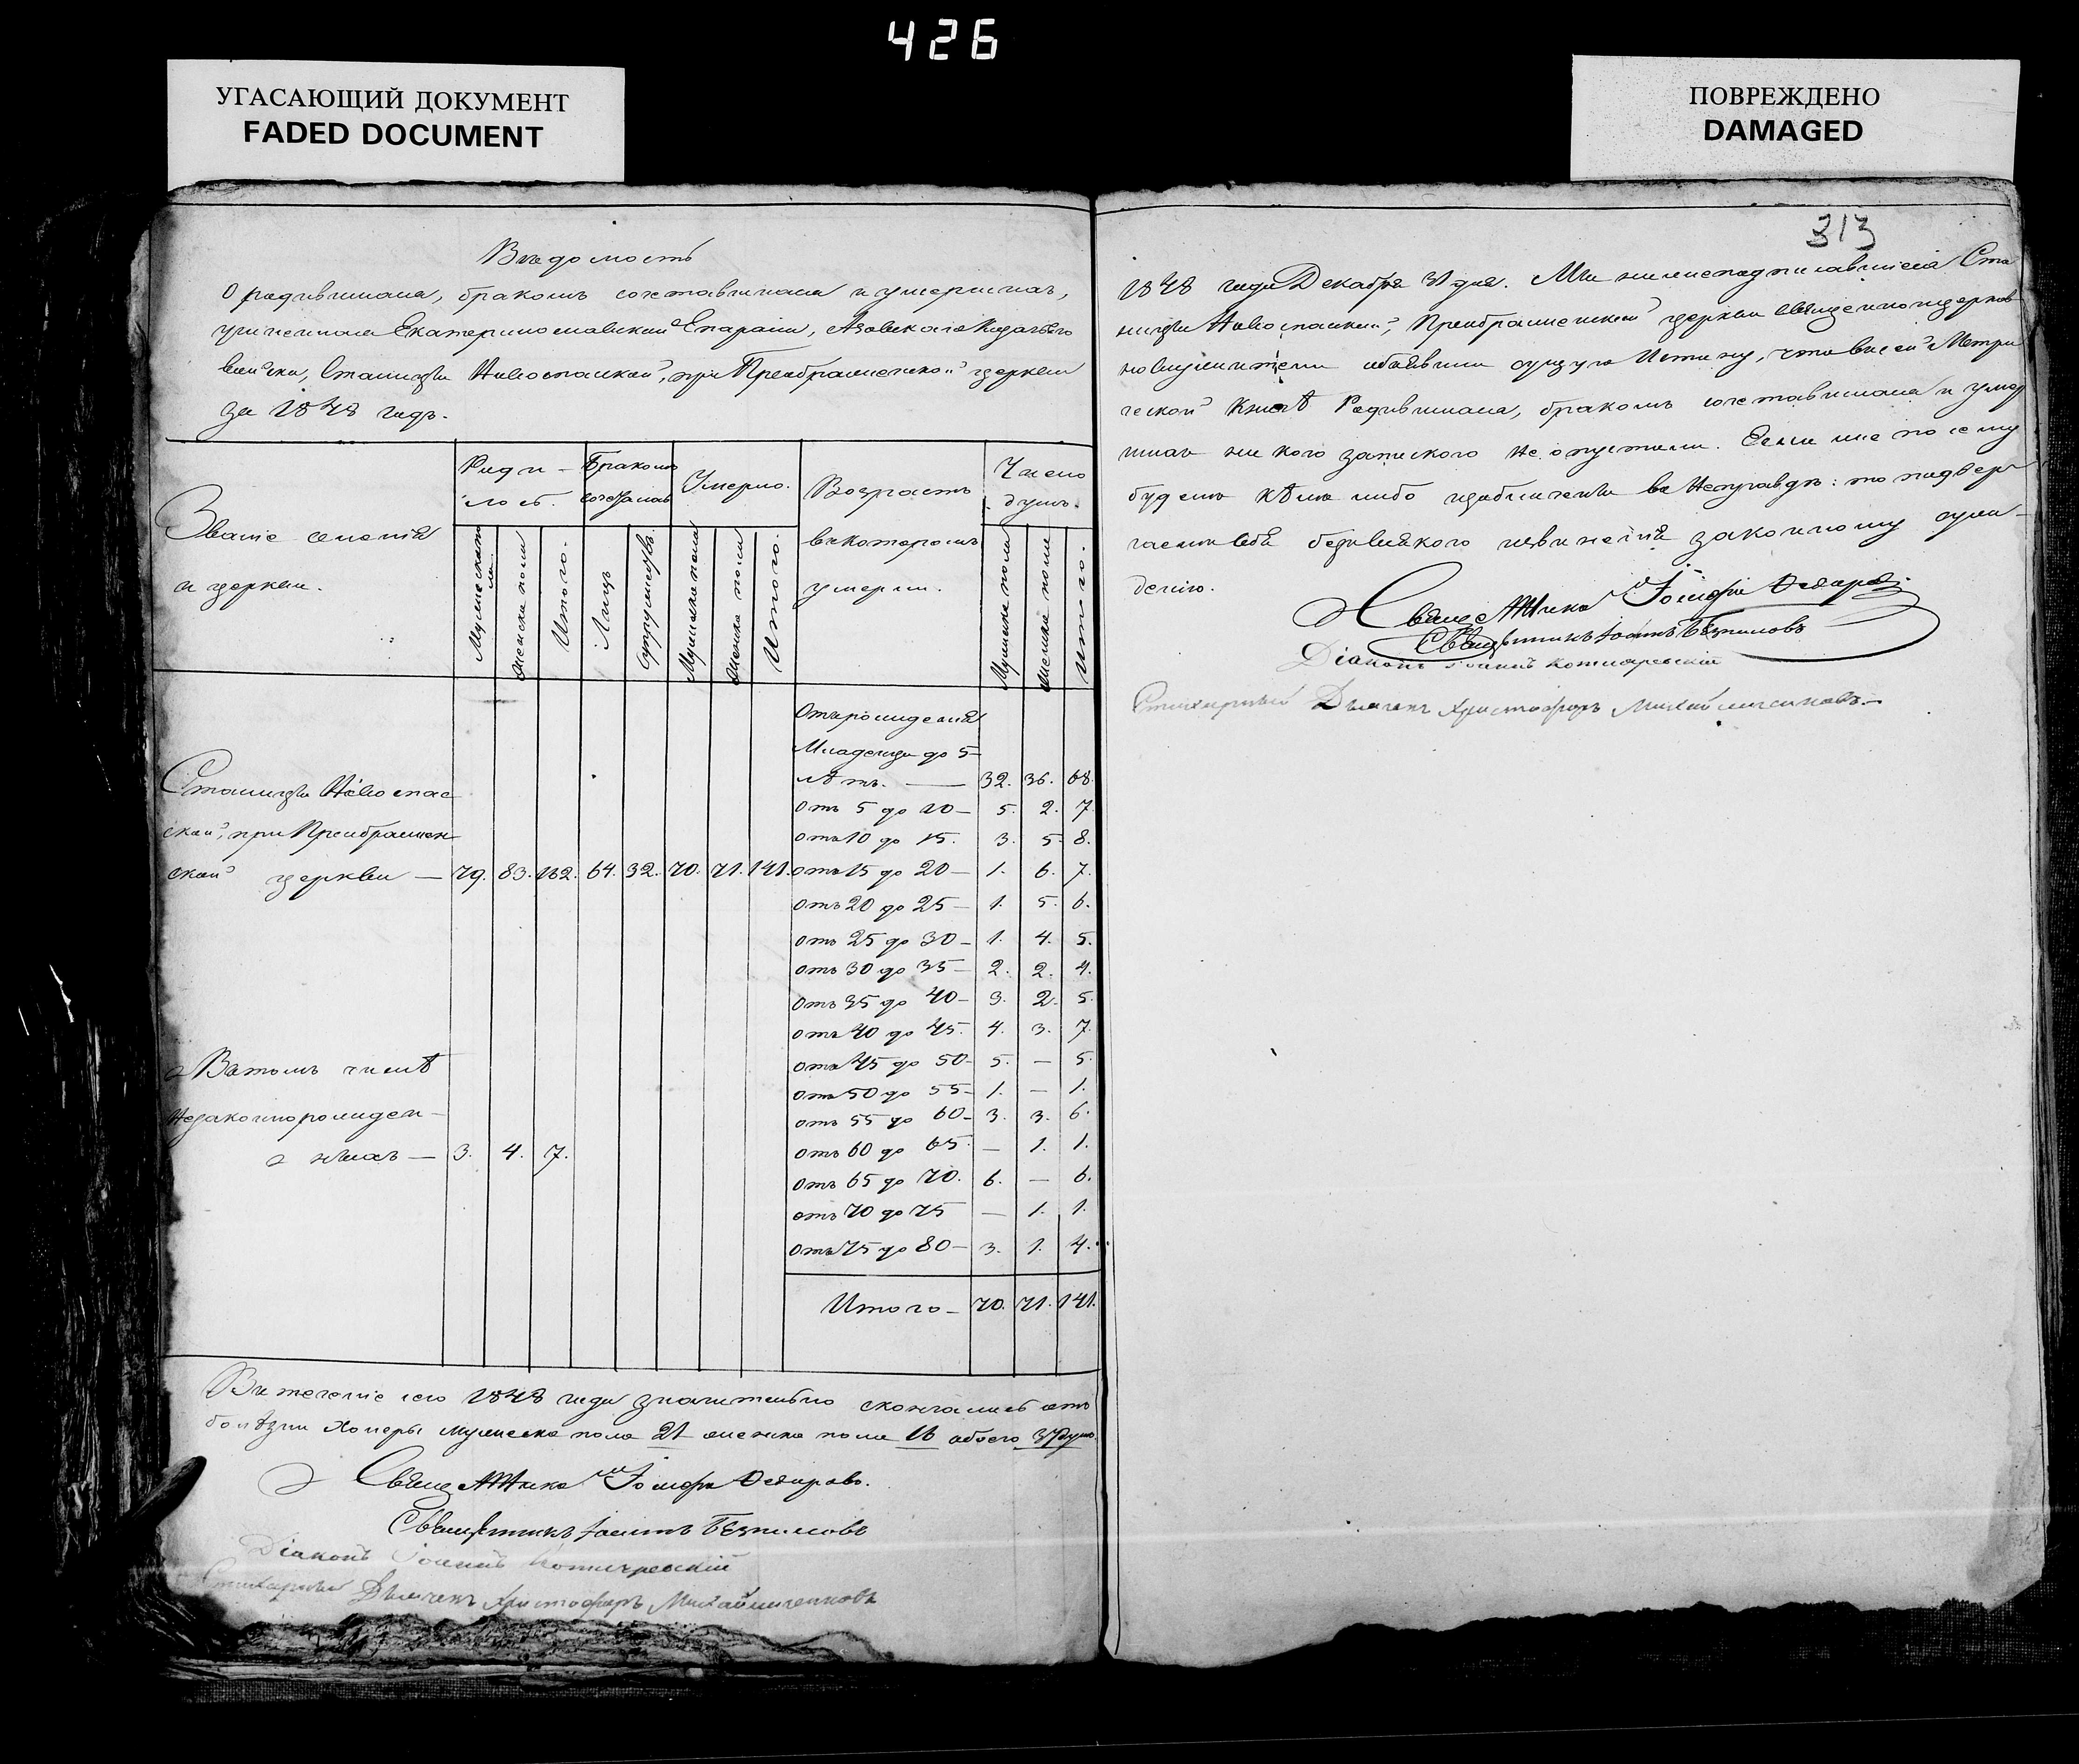 426
УГАСАЮЩИЙ ДОКУМЕНТ
FADED DOCUMENT
ПОВРЕЖДЕНО
DAMAGED
Вѣдомость
О родившихся, бракомъ сочетавшихся и умершихъ,
Екатеринославской Епархіи, Азовскаго Казачьяго
войска, Станицы Новоспаской, при Преображенской церкви
за 1848 годъ.
Званіе селенія
и церкви.
Роди-
лось.
Бракомъ
сочетались
Умерло.
Возрастъ
въ которомъ
умерли.
Число
душъ.
Мужеска пола
Женска пола
Итого.
Лицъ
Супружествъ
Мужеска пола
Женска пола
Итого.
Мужеска пола
Женска пола
Итого.
Отъ рожденія
Младенцы до 5
лѣтъ. — 32. 36. 68.
Отъ 5 до 10 — 5. 2. 7.
отъ 10 до 15. 3. 5. 8.
Станицы Новоспас
ской, при Преображен
ской церкви — 79. 83. 162. 64. 32. 70. 71. 141. отъ 15 до 20 — 1. 6. 7.
Отъ 20 до 25 — 1. 5. 6.
отъ 25 до 30 — 1. 4. 5.
отъ 30 до 35 — 2. 2. 4.
Отъ 35 до 40 — 3. 2. 5.
отъ 40 до 45. 4. 3. 7.
отъ 45 до 50 — 5. — 5.
отъ 50 до 55 — 1. — 1.
отъ 55 до 60 — 3. 3. 6.
отъ 60 до 65. — 1. 1.
отъ 65 до 70. 6. — 6.
отъ 70 до 75 — 1. 1.
Отъ 75 до 80 — 3. 1. 4.
Въ томъ числѣ
Незаконнорожден-
ныхъ — 3. 4. 7.
Итого — 70. 71. 141.
Въ теченіе сего 1848 года значительно скончались отъ
болѣзни Холеры мужеска пола 21 женска пола 16 обоего 37 душъ.
Іосифъ
Священникъ Іоаннъ
Діаконъ Іоаннъ Котляревскій
Стихарный Дьячекъ Христофоръ Михайличенковъ
313
1848 года Декабря 31 дня. Мы нижеподписавшіеся Ста
ницы Новоспаской, Преображенской церкви священноцерков
нослужители объявили сущую Истину, что въ сей Метри
ческой Книгѣ Родившихся, бракомъ сочетавшихся и умер
шихъ ни кого запискою не опустили. Если же по сему
будемъ кѣмъ либо изобличены въ Неправдѣ: то подвер
гаемъ себя безъ всякого извиненія законному сужде-
денію.
Іосифъ
Священникъ Іоаннъ
Діаконъ Іоаннъ Котляревскій
Стихарный Дьячекъ Христофоръ Михайличенковъ.